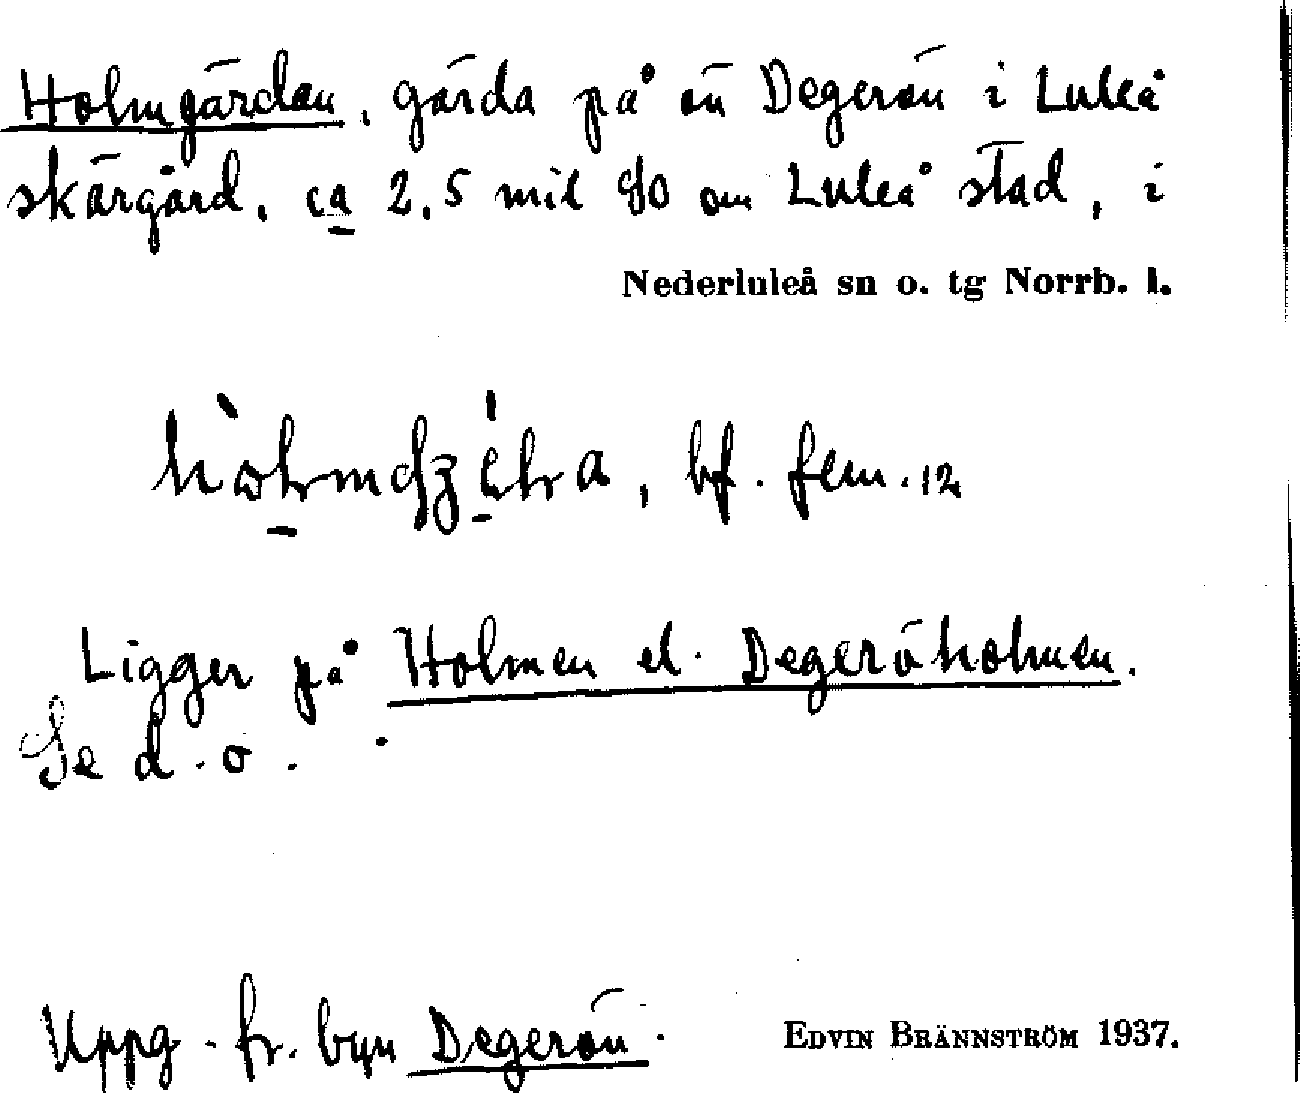 Holmgärdan, gärda på ön Degerön i Luleå
skärgård, ca 2,5 mil SO om Luleå stad, i
Nederluleå sn o. tg Norrb. l.
bf. fem.
Ligger på Holmen el. Degeröholmen.
Se d. o.
Uppg. fr. byn Degerön. EDVIN BRÄNNSTRÖM 1937.